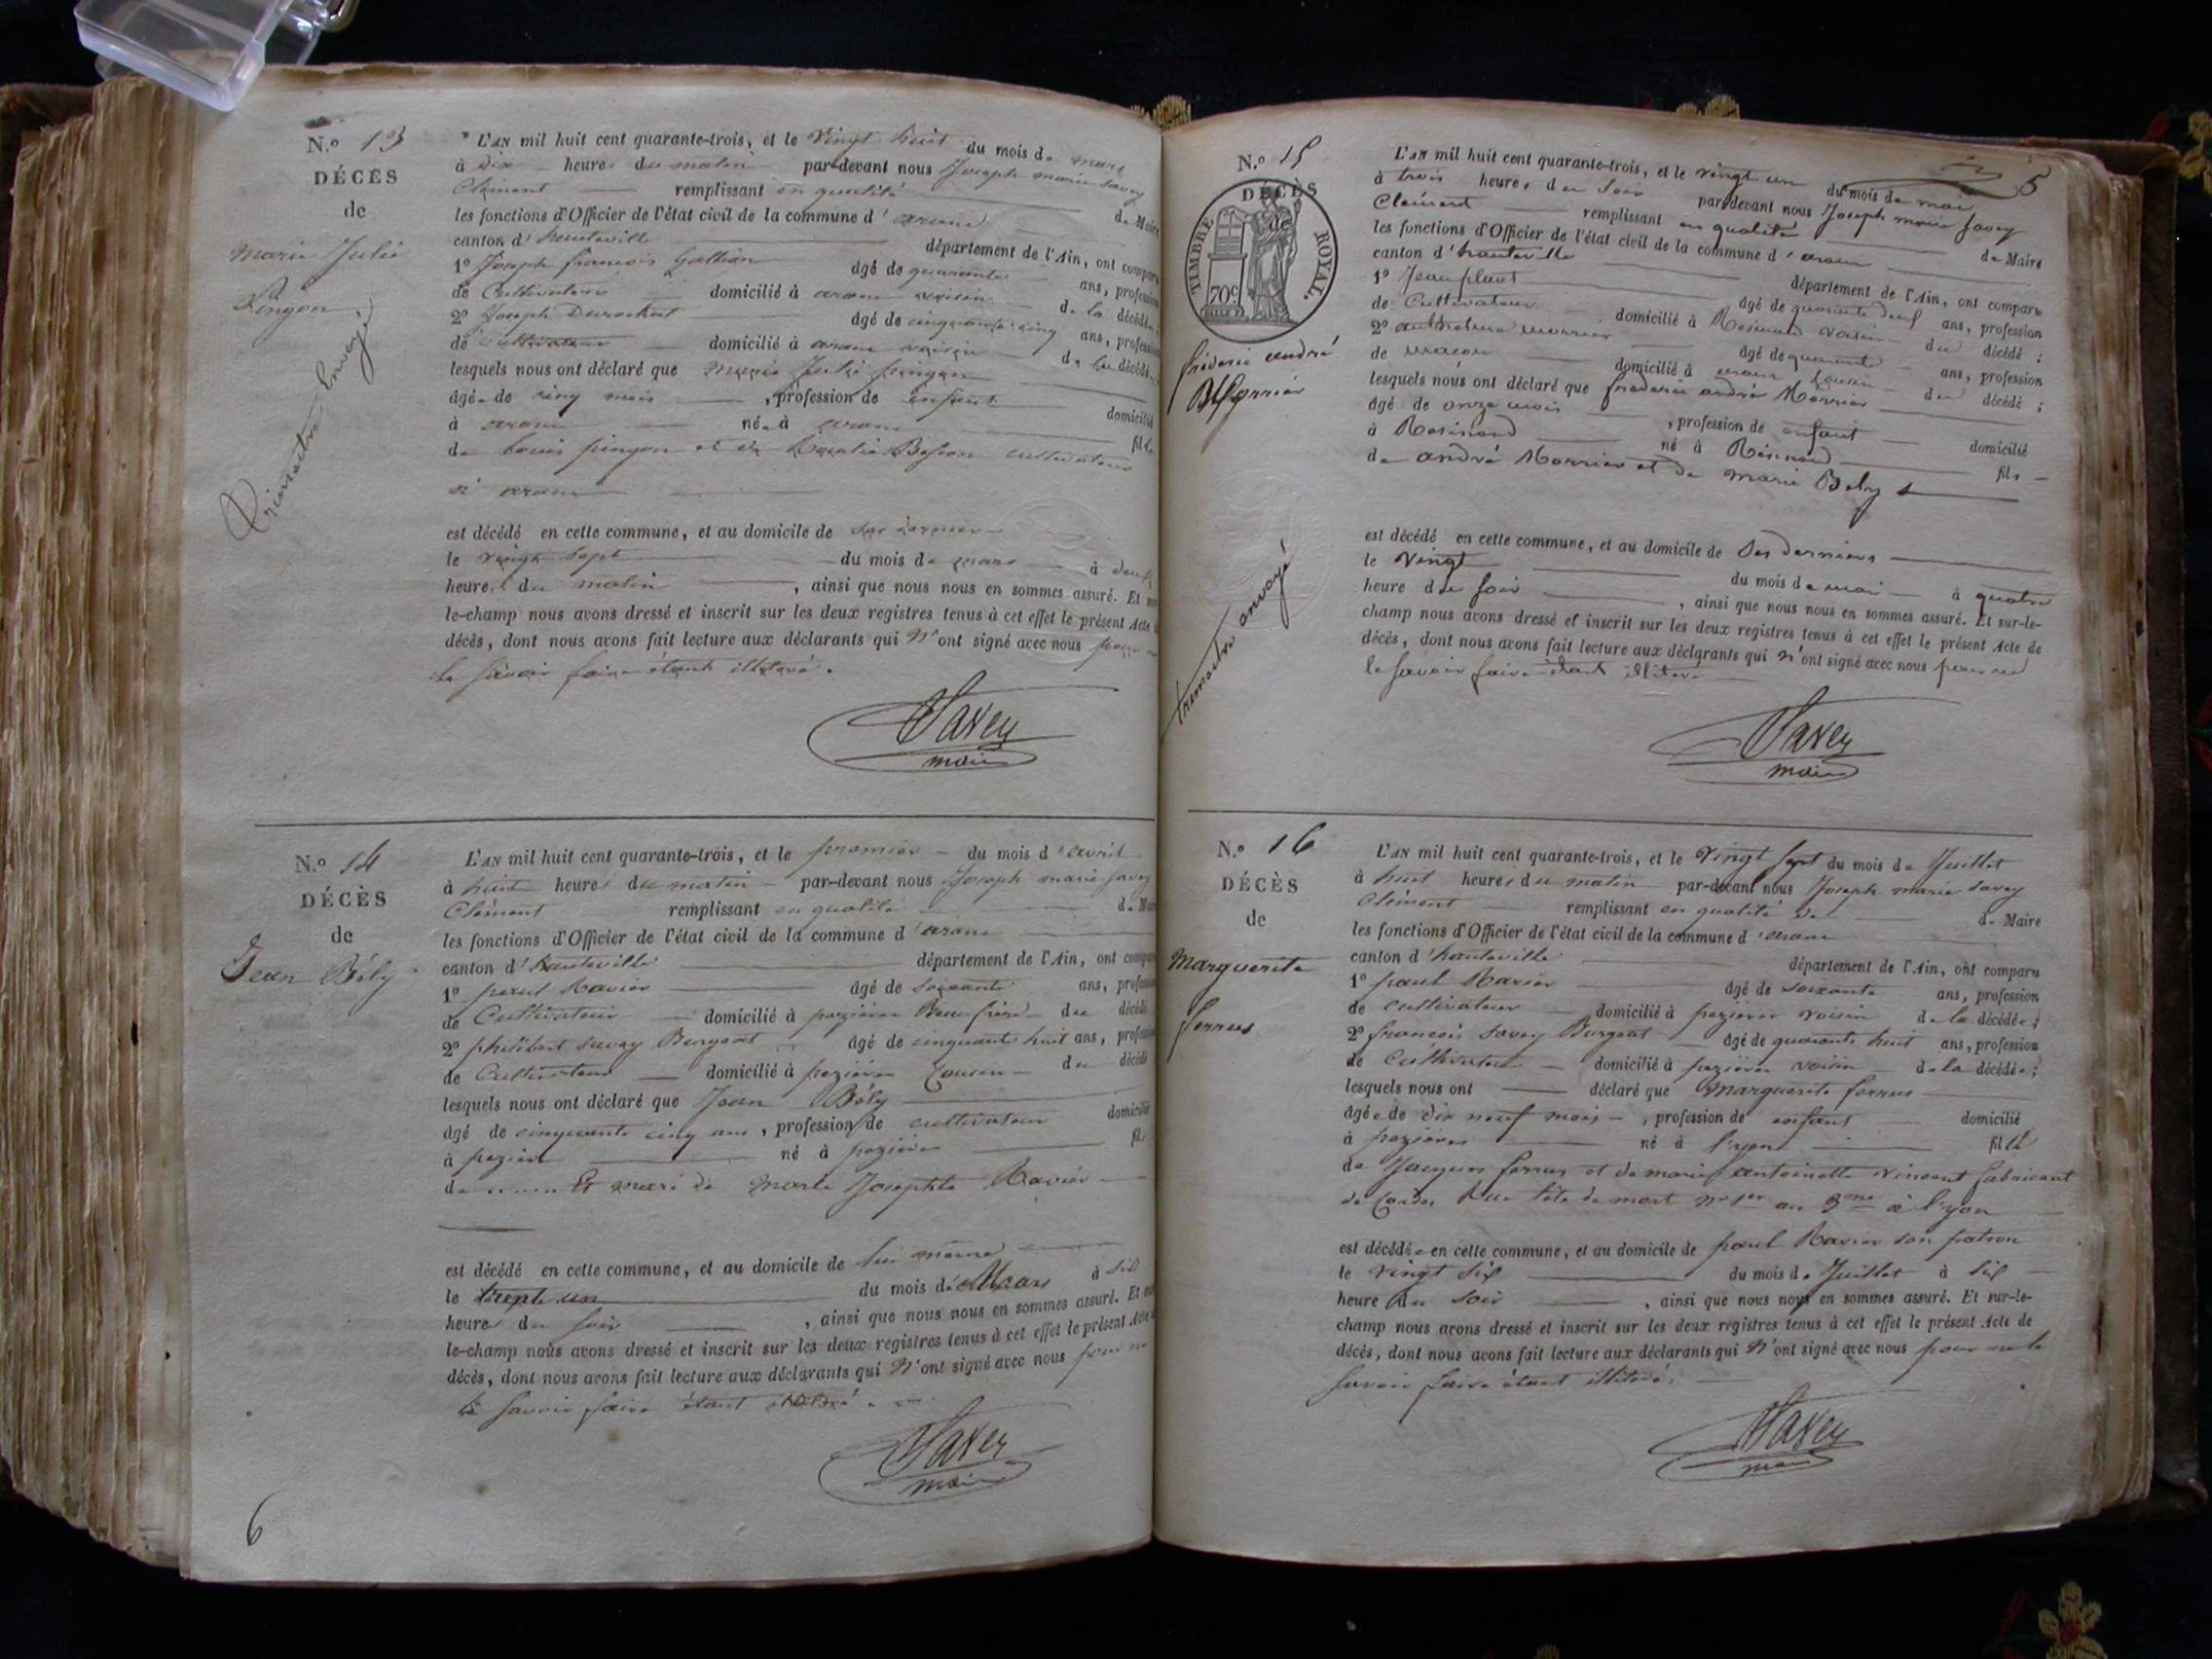 N.º 13
DÉCÈS
de
Marie Julie
Pingon
Trimestre Envoyé
L'AN mil huit cent quarante-trois, et le vingt huit du mois de mars
à dix heures du matin par-devant nous Joseph marie savey
Clément remplissant en qualité de Maire
les fonctions d'Officier de l'état civil de la commune d'aranc
canton d'hauteville département de l'Ain, ont comparu
1º Joseph françois Gallian âgé de quarante ans, profession
de Cultivateur domicilié à aranc voisin de la décédée;
2º Joseph Durochat âgé de cinquante cinq ans, profession
de cultivateur domicilié à aranc voisin de la décédée
lesquels nous ont déclaré que Marie Julie pingon
âgée de cinq mois, profession de enfant domicilié
à aranc née à aranc fille
de Louis pingon et de Besson cultivateurs
à aranc
est décédé en cette commune, et au domicile de ses derniers
le vingt sept du mois de mars à deux
heures du matin, ainsi que nous nous en sommes assuré. Et
le-champ nous avons dressé et inscrit sur les deux registres tenus à cet effet le présent Acte
décès, dont nous avons fait lecture aux déclarants qui n'ont signé avec nous pour
le savoir faire étant illiteré.
Savey
maire
N.º 14
DÉCÈS
de
Jean Bély
L'AN mil huit cent quarante-trois, et le premier du mois d'avril
à huit heures du matin par-devant nous Joseph marie savey
Clément remplissant en qualité de Maire
les fonctions d'Officier de l'état civil de la commune d'aranc
canton d'hauteville département de l'Ain, ont comparu
1º paul Ravier âgé de soixante ans, profession
de Cultivateur domicilié à pezières Beau frère du décédé
2º philibert savey Burgeat âgé de cinquante huit ans, profession
de Cultivateur domicilié à pezières Cousin du décédé
lesquels nous ont déclaré que Jean Bély
âgé de cinquante cinq ans, profession de cultivateur domicilié
à pezières né à pezières fils
de ..... Et mari de Marie Josephte Ravier
est décédé en cette commune, et au domicile de lui même
le trente un du mois de Mars à six
heures du soir, ainsi que nous nous en sommes assuré. Et
le-champ nous avons dressé et inscrit sur les deux registres tenus à cet effet le présent Acte
décès, dont nous avons fait lecture aux déclarants qui n'ont signé avec nous pour ne
le savoir faire étant
Savey
maire
6
5
N.º 15
DÉCÈS
de
TIMBRE ROYAL.
70c
fréderic andré
Morrier
trimestre envoyé
L'AN mil huit cent quarante-trois, et le vingt un du mois de mai
à trois heures du soir par-devant nous Joseph marie savey
Clément remplissant en qualité de Maire
les fonctions d'Officier de l'état civil de la commune d'aranc
canton d'hauteville département de l'Ain, ont comparu
1º Jean âgé de quarante neuf ans, profession
de Cultivateur domicilié à Résinand voisin du décédé;
2º morrier âgé de quarante ans, profession
de maçon domicilié à aranc Cousin du décédé;
lesquels nous ont déclaré que frederic andré Morrier
âgé de onze mois, profession de enfant domicilié
à Résinand né à Résinand fils
de andré Morrier et de marie Bely
est décédé en cette commune, et au domicile de ses derniers
le vingt du mois de mai à quatre
heure du soir, ainsi que nous nous en sommes assuré. Et sur-le-
champ nous avons dressé et inscrit sur les deux registres tenus à cet effet le présent Acte de
décès, dont nous avons fait lecture aux déclarants qui n'ont signé avec nous pour ne
le savoir faire étant
Savey
maire
N.º 16
DÉCÈS
de
Marguerite
ferrus
L'AN mil huit cent quarante-trois, et le vingt sept du mois de Juillet
à huit heures du matin par-devant nous Joseph marie savey
Clément remplissant en qualité de de Maire
les fonctions d'Officier de l'état civil de la commune d'aranc
canton d'hauteville département de l'Ain, ont comparu
1º paul Ravier âgé de soixante ans, profession
de cultivateur domicilié à pezières voisin de la décédée;
2º francois savey Burgeat âgé de quarante huit ans, profession
de Cultivateur domicilié à pezières voisin de la décédée;
lesquels nous ont déclaré que Marguerite ferrus
âgée de dix neuf mois, profession de enfant domicilié
à pezières né à l'yon fille
de Jacques ferrus et de marie antoinette vincent fabricant
de Cordes Rue tête de mort nº 1er au 3me à l'yon
est décédée en cette commune, et au domicile de paul Ravier son patron
le vingt six du mois de Juillet à six
heure du soir, ainsi que nous nous en sommes assuré. Et sur-le-
champ nous avons dressé et inscrit sur les deux registres tenus à cet effet le présent Acte de
décès, dont nous avons fait lecture aux déclarants qui n'ont signé avec nous pour ne le
savoir faire étant illiterés
Savey
maire